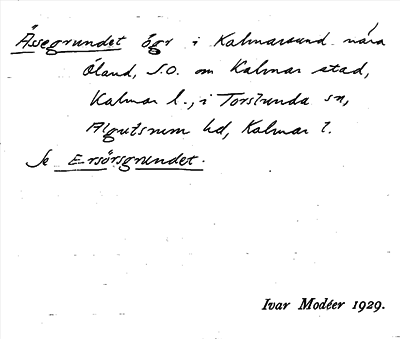 Åssegrundet ögr i Kalmarsund nära
Öland, S.O. om Kalmar stad,
Kalmar l., i Torslunda sn,
Algutsrum hd, Kalmar l.
Se Ersörsgrundet.
Ivar Modéer 1929.